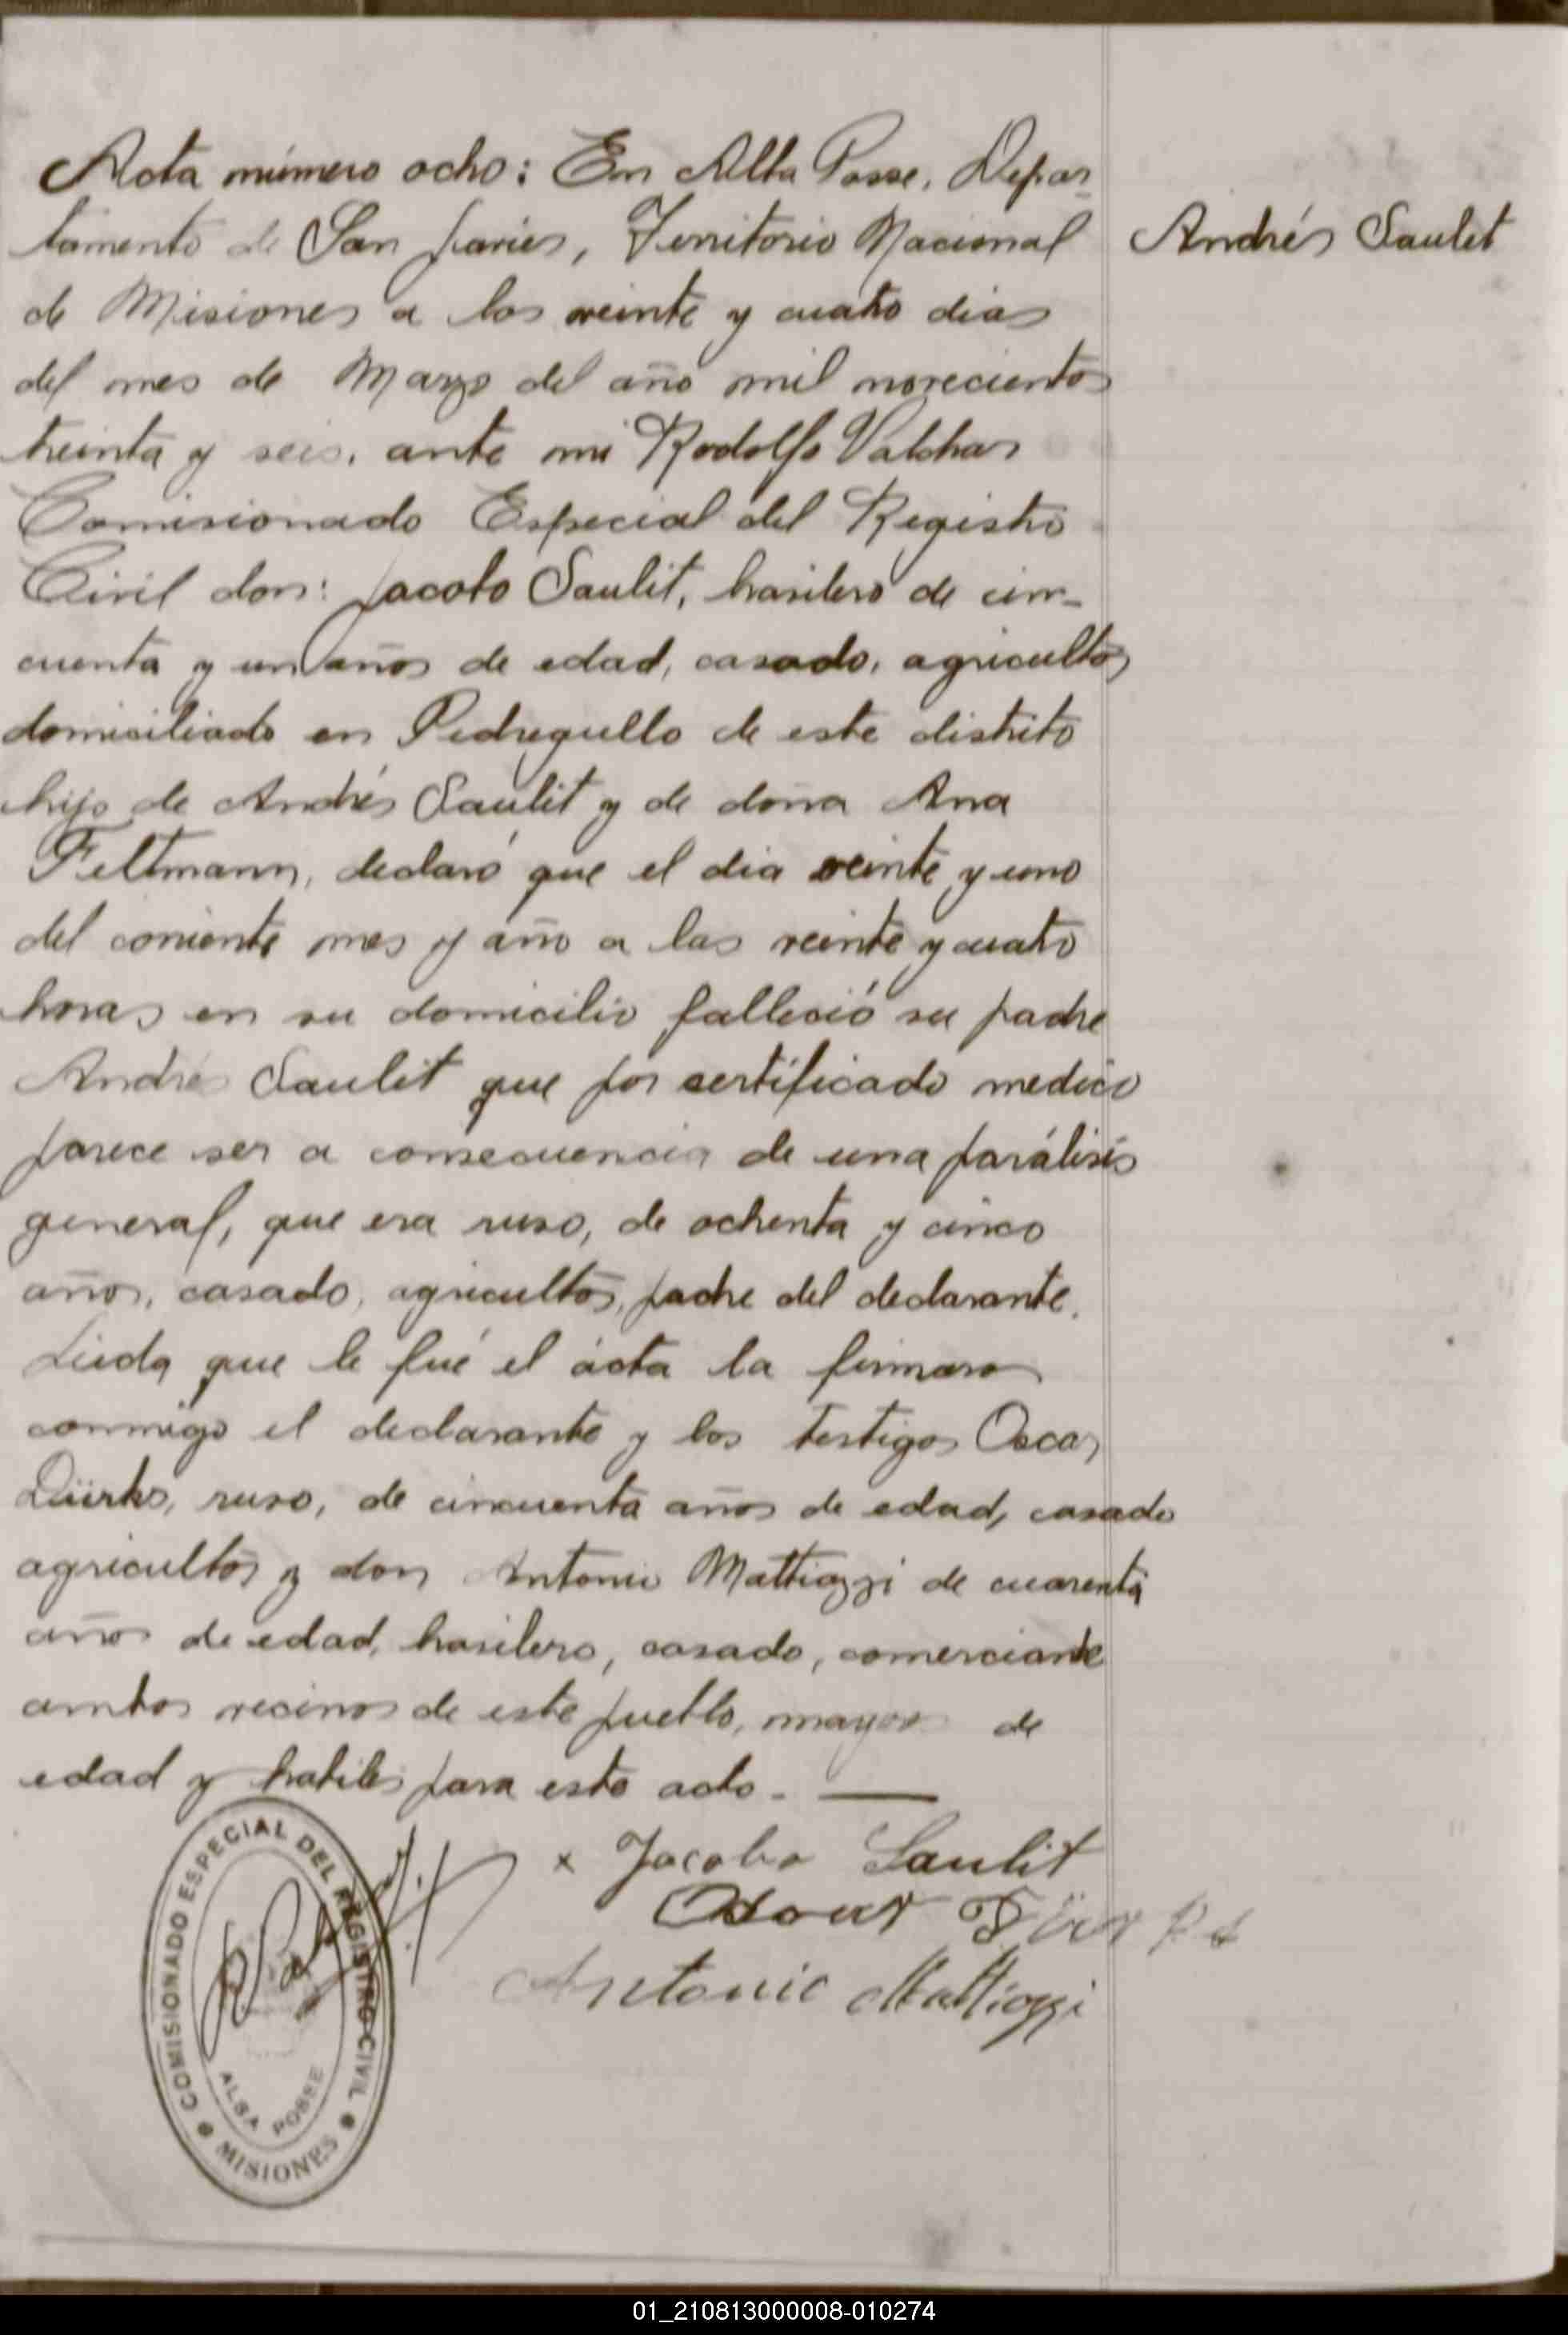 Acta número ocho: En Alba Posse, Depar-
tamento de San Javier, Territorio Nacional
Andrés Saulit
de Misiones a los veinte y cuatro dias
del mes de Marzo del año mil novecientos
treinta y seis, ante mi Rodolfo Valchar
Comisionado Especial del Registro
Civil don: Jacobo Saulit, brasilero de cin-
cuenta y un años de edad, casado, agricultor
domiciliado en Pedregullo de este distrito
hijo de Andrés Saulit y de doña Ana
Feltmann, declaró que el dia veinte y uno
del corriente mes y año a las veinte y cuatro
horas en su domicilio falleció su padre
Andrés Saulit que por certificado medico
parece ser a consecuencia de una parálisis
general, que era ruso, de ochenta y cinco
años, casado, agricultor, padre del declarante.
Leida que le fué el ácta la firmaron
conmigo el declarante y los testigos Oscar
Dürks, ruso, de cincuenta años de edad, casado
agricultor y don Antonio Mattiazzi de cuarenta
años de edad, brasilero, casado, comerciante
ambos vecinos de este pueblo, mayores de
edad y habiles para este acto.
x Jacobo Saulit
Antonio Mattiazzi
COMISIONADO ESPECIAL DEL REGISTRO CIVIL
ALBA POSSE
MISIONES
01_210813000008-010274